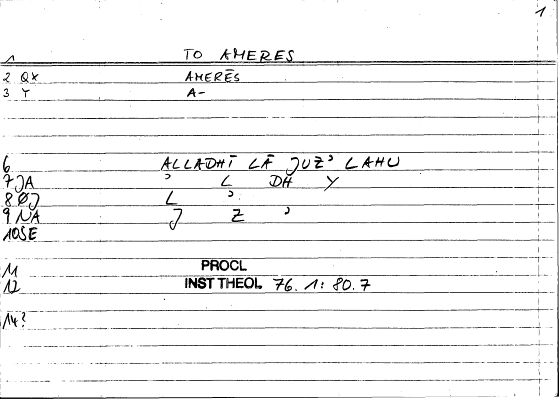 1
1 TO AMERES
2 QX AMERĒS
3 Y A-
6 ALLADHĪ LĀ JUZ' LAHU
7 JA ' L DH Y
8 ØJ L '
9 NA J Z '
10 SE
11 PROCL
12 INST THEOL 76. 1: 80.7
14?